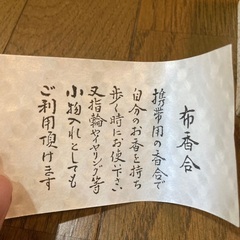 布香合
携帯用の香合で
自分のお香を持ち
歩く時にお使い下さい
又指輪やイヤリング等
小物入れとしても
ご利用頂けます